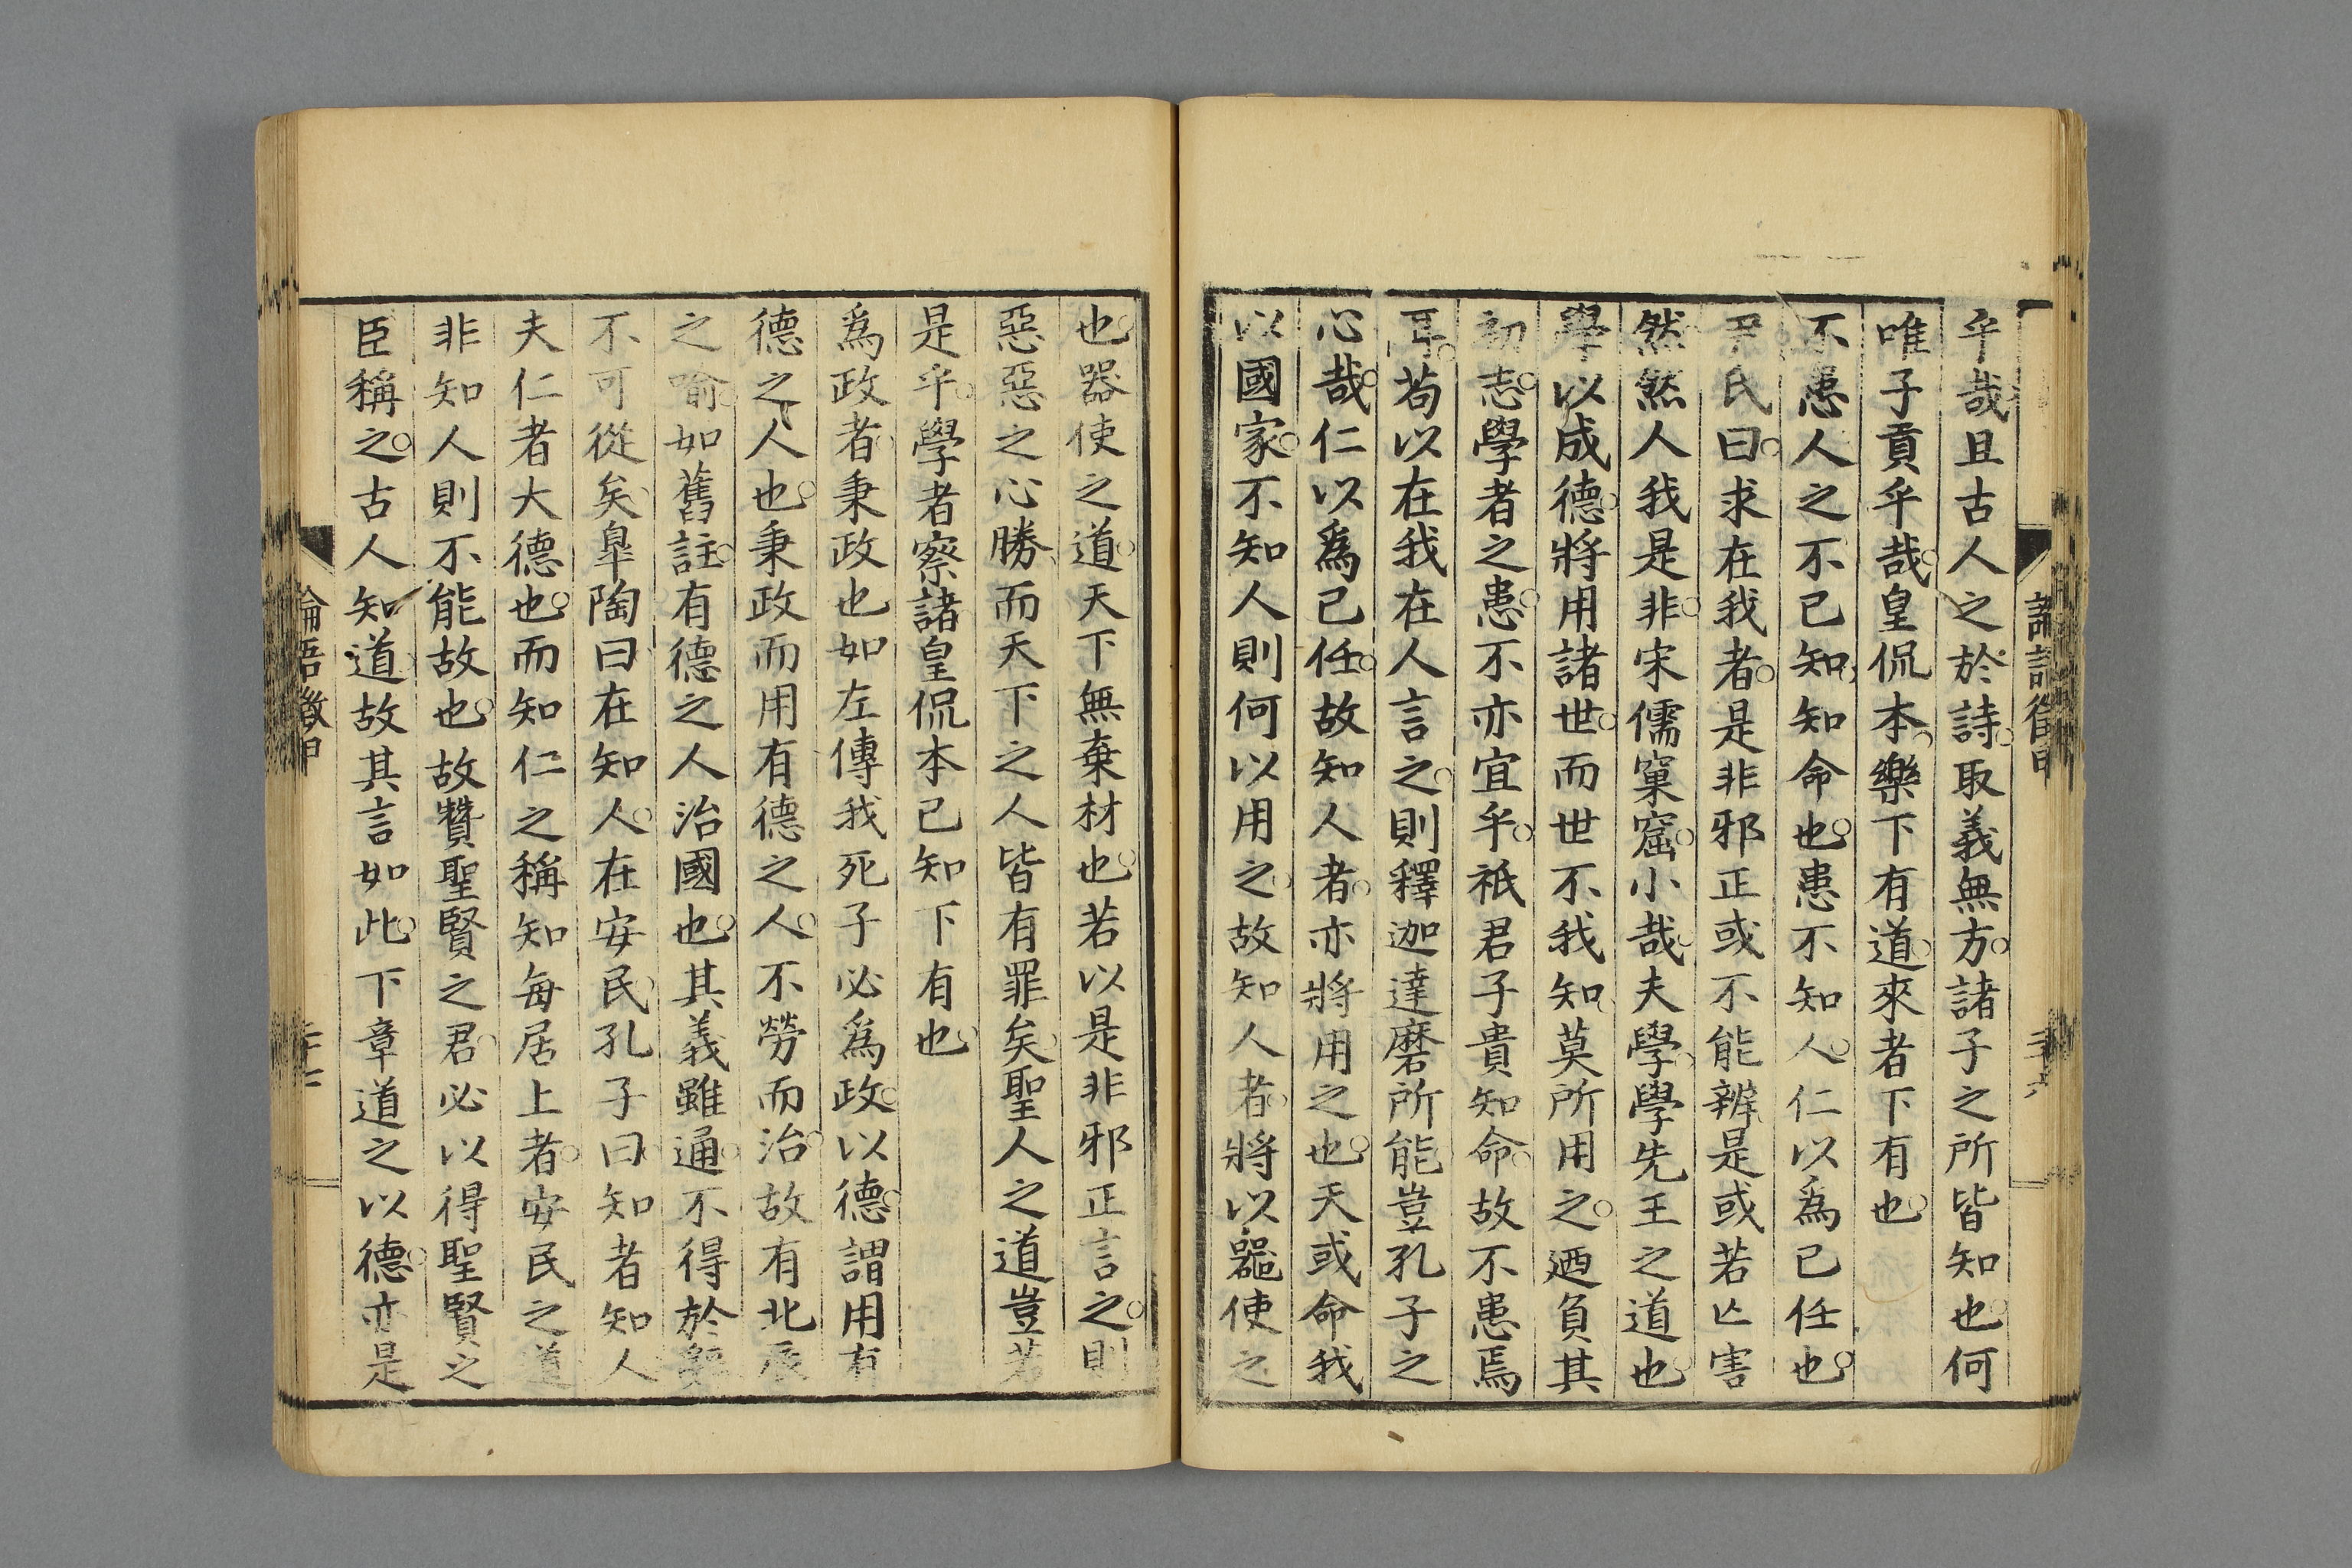 論語徵甲
乎哉且古人之於詩取義無方諸子之所皆知也何
唯子貢乎哉皇侃本樂下有道來者下有也
不患人之不己知知命也患不知人仁以爲己任也
尹氏曰求在我者是非邪正或不能辨是或若匕害
然然人我是非宋儒窠窟小哉夫學學先王之道也
學以成德將用諸世而世不我知莫所用之廼負其
初志學者之患不亦宜乎祇君子貴知命故不患焉
耳苟以在我在人言之則釋迦達磨所能豈孔子之
心哉仁以爲己任故知人者亦將用之也天或命我
以國家不知人則何以用之故知人者將以器使之
也器使之道天下無棄材也若以是非邪正言之則
惡惡之心勝而天下之人皆有罪矣聖人之道豈若
是乎學者察諸皇侃本己知下有也
爲政者秉政也如左傳我死子必爲政以德謂用有
德之人也秉政而用有德之人不勞而治故有北辰
之喻如舊註有德之人治國也其義雖通不得於辭
不可從矣皐陶曰在知人在安民孔子曰知者知人
夫仁者大德也而知仁之稱知每居上者安民之道
非知人則不能故也故贊聖賢之君必以得聖賢之
臣稱之古人知道故其言如此下章道之以德亦是
論語徵甲